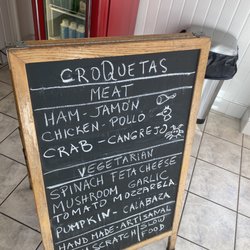 CROQUETAS
MEAT
HAM - JAMÓN
CHICKEN - POLLO
CRAB - CANGREJO
VEGETARIAN
SPINACH FETA CHEESE
MUSHROOM GARLIC
TOMATO MOZZARELA
PUMPKIN - CALABAZA
HAND MADE - ARTISANAL
SCRATCH SLOW
FOOD